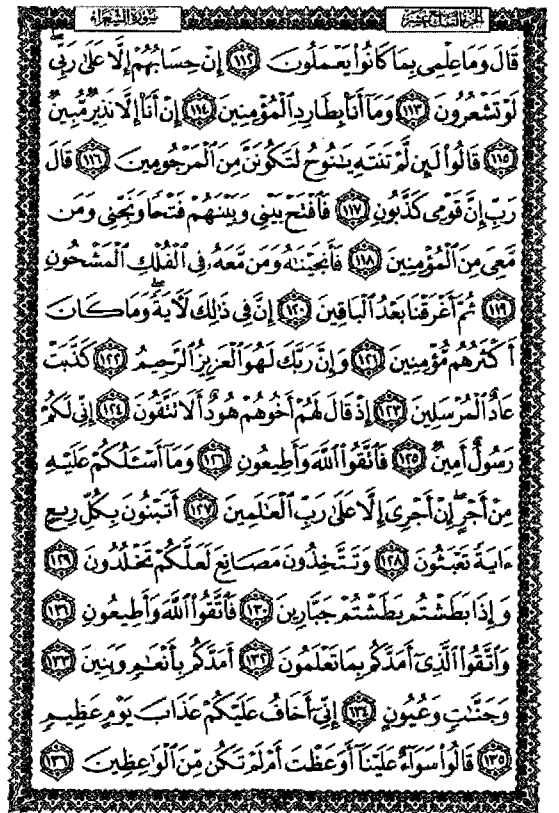 الجزء التاسع عشر سورة الشعراء
قَالَ وَمَا عِلْمِى بِمَا كَانُوا۟ يَعْمَلُونَ ﴿١١٢﴾ إِنْ حِسَابُهُمْ إِلَّا عَلَىٰ رَبِّى ۖ
لَوْ تَشْعُرُونَ ﴿١١٣﴾ وَمَآ أَنَا۠ بِطَارِدِ ٱلْمُؤْمِنِينَ ﴿١١٤﴾ إِنْ أَنَا۠ إِلَّا نَذِيرٌ مُّبِينٌ
﴿١١٥﴾ قَالُوا۟ لَئِن لَّمْ تَنتَهِ يَـٰنُوحُ لَتَكُونَنَّ مِنَ ٱلْمَرْجُومِينَ ﴿١١٦﴾ قَالَ
رَبِّ إِنَّ قَوْمِى كَذَّبُونِ ﴿١١٧﴾ فَٱفْتَحْ بَيْنِى وَبَيْنَهُمْ فَتْحًا وَنَجِّنِى وَمَن
مَّعِىَ مِنَ ٱلْمُؤْمِنِينَ ﴿١١٨﴾ فَأَنجَيْنَـٰهُ وَمَن مَّعَهُۥ فِى ٱلْفُلْكِ ٱلْمَشْحُونِ
﴿١١٩﴾ ثُمَّ أَغْرَقْنَا بَعْدُ ٱلْبَاقِينَ ﴿١٢٠﴾ إِنَّ فِى ذَٰلِكَ لَـَٔايَةً ۖ وَمَا كَانَ
أَكْثَرُهُم مُّؤْمِنِينَ ﴿١٢١﴾ وَإِنَّ رَبَّكَ لَهُوَ ٱلْعَزِيزُ ٱلرَّحِيمُ ﴿١٢٢﴾ كَذَّبَتْ
عَادٌ ٱلْمُرْسَلِينَ ﴿١٢٣﴾ إِذْ قَالَ لَهُمْ أَخُوهُمْ هُودٌ أَلَا تَتَّقُونَ ﴿١٢٤﴾ إِنِّى لَكُمْ
رَسُولٌ أَمِينٌ ﴿١٢٥﴾ فَٱتَّقُوا۟ ٱللَّهَ وَأَطِيعُونِ ﴿١٢٦﴾ وَمَآ أَسْـَٔلُكُمْ عَلَيْهِ
مِنْ أَجْرٍ ۖ إِنْ أَجْرِىَ إِلَّا عَلَىٰ رَبِّ ٱلْعَـٰلَمِينَ ﴿١٢٧﴾ أَتَبْنُونَ بِكُلِّ رِيعٍ
ءَايَةً تَعْبَثُونَ ﴿١٢٨﴾ وَتَتَّخِذُونَ مَصَانِعَ لَعَلَّكُمْ تَخْلُدُونَ ﴿١٢٩﴾
وَإِذَا بَطَشْتُم بَطَشْتُمْ جَبَّارِينَ ﴿١٣٠﴾ فَٱتَّقُوا۟ ٱللَّهَ وَأَطِيعُونِ ﴿١٣١﴾
وَٱتَّقُوا۟ ٱلَّذِىٓ أَمَدَّكُم بِمَا تَعْلَمُونَ ﴿١٣٢﴾ أَمَدَّكُم بِأَنْعَـٰمٍ وَبَنِينَ ﴿١٣٣﴾
وَجَنَّـٰتٍ وَعُيُونٍ ﴿١٣٤﴾ إِنِّىٓ أَخَافُ عَلَيْكُمْ عَذَابَ يَوْمٍ عَظِيمٍ
﴿١٣٥﴾ قَالُوا۟ سَوَآءٌ عَلَيْنَآ أَوَعَظْتَ أَمْ لَمْ تَكُن مِّنَ ٱلْوَٰعِظِينَ ﴿١٣٦﴾